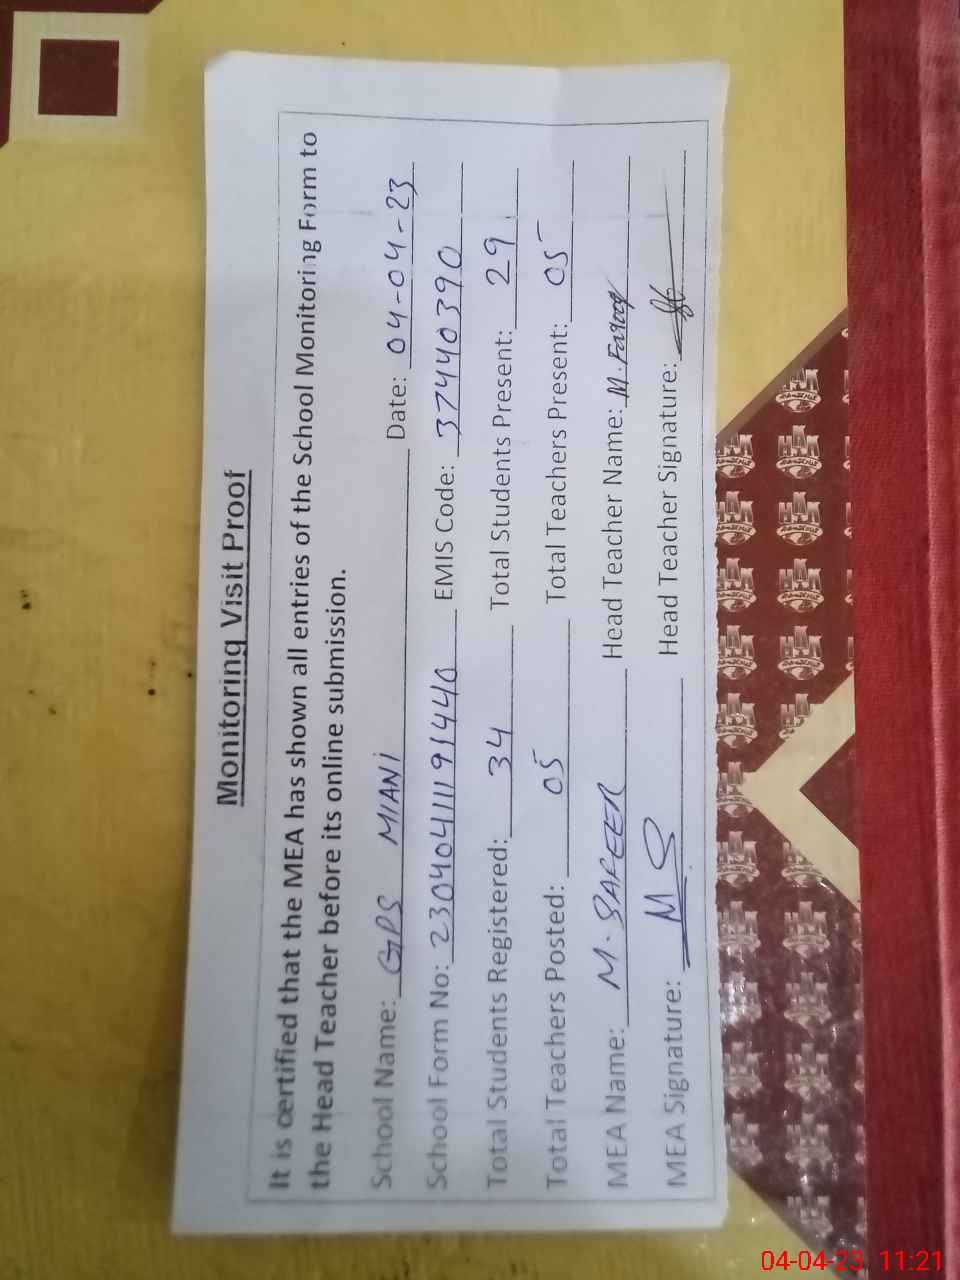 Monitoring Visit Proof
It is certified that the MEA has shown all entries of the School Monitoring Form to
the Head Teacher before its online submission.
School Name: GPS MIANI Date: 04-04-23
School Form No: 230404111191440 EMIS Code: 37440390
Total Students Registered: 34 Total Students Present: 29
Total Teachers Posted: 05 Total Teachers Present: 05
MEA Name: M. SAFEER Head Teacher Name: M. Farooq
MEA Signature: MS Head Teacher Signature:
04-04-23 11:21